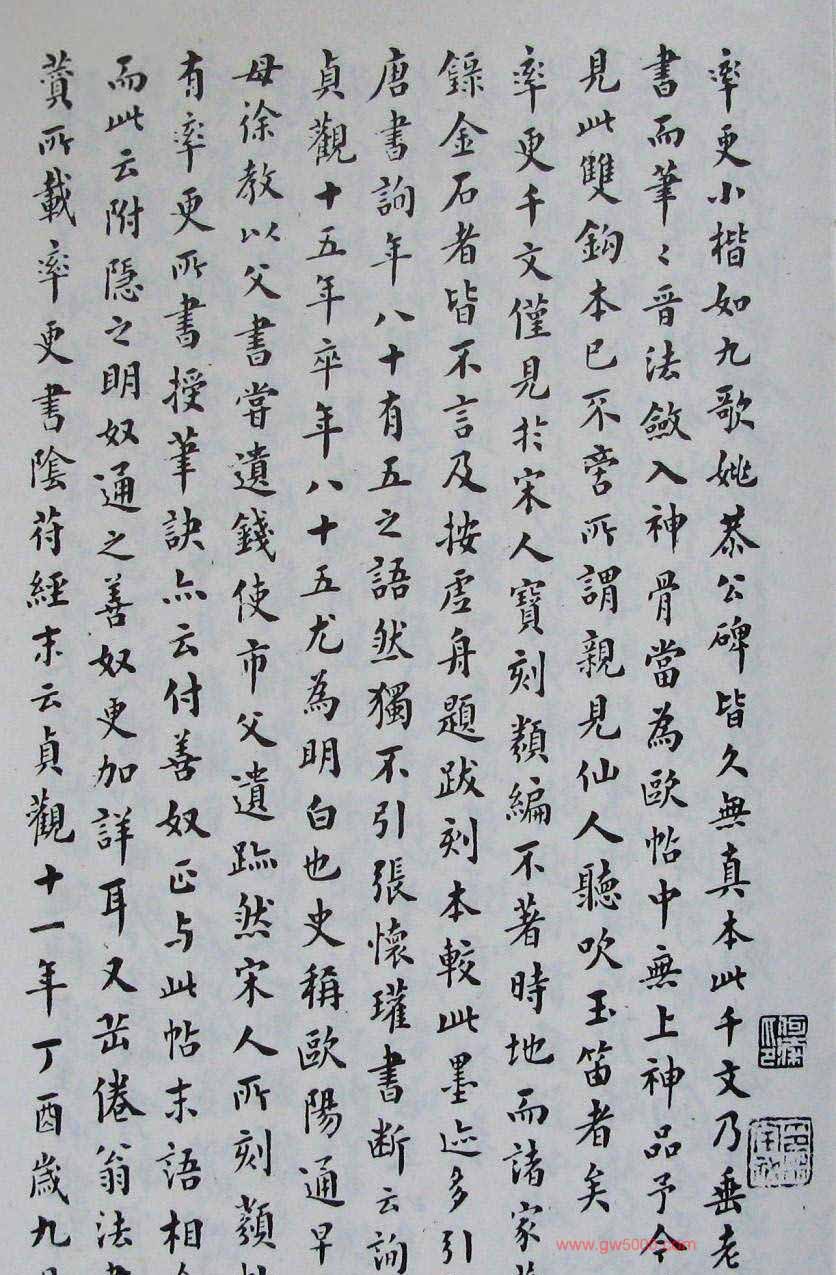 率更小楷如九歌姚恭公碑皆久無真本此千文乃垂老
書而筆々晉法斂入神骨當為歐帖中無上神品予今
見此雙鈎本已不啻所謂親見仙人聽吹玉笛者矣
率更千文僅見於宋人寶刻類編不著時地而諸家
錄金石者皆不言及按虛舟題跋刻本較此墨迹多引
唐書詢年八十有五之語然獨不引張懷瓘書斷云詢
貞觀十五年卒年八十五尤為明白也史稱歐陽通早
母徐教以父書嘗遺錢使市父遺跡然宋人所刻類
有率更所書授筆訣亦云付善奴正与此帖末語相
而此云附隱之明奴通之善奴更加詳耳又岳倦翁法
贊所載率更書陰符經末云貞觀十一年丁酉歲九
www.gw5000.com